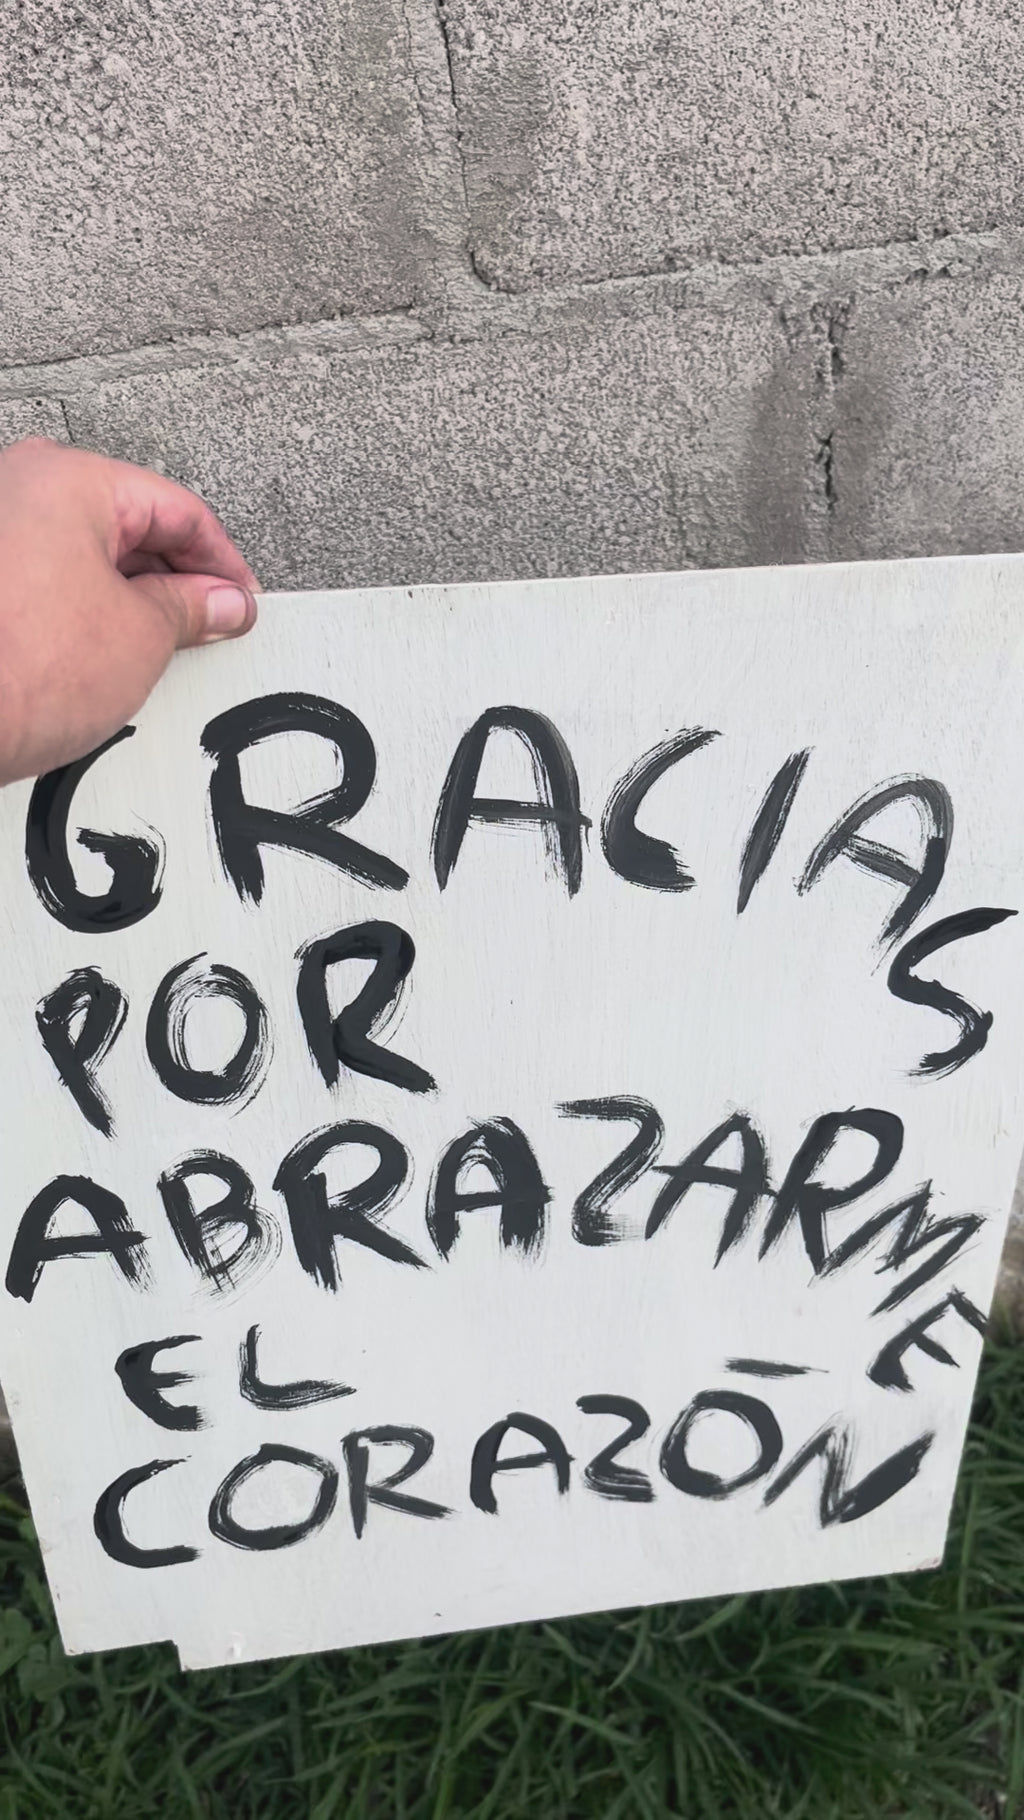 GRACIAS
POR
ABRAZARME
EL
CORAZÓN